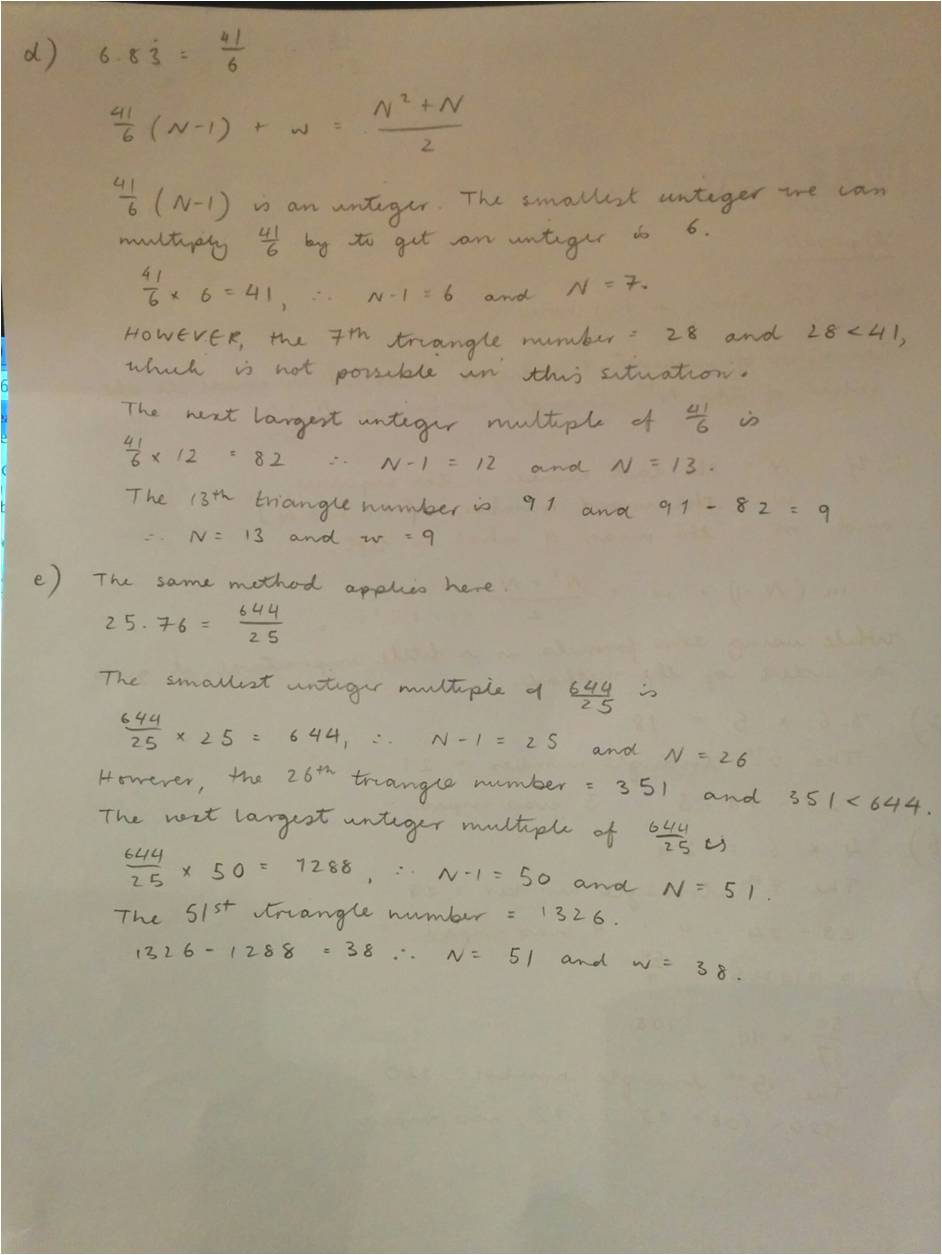 d) 6.83̇ = 41/6
41/6 (N-1) + w = (N² + N)/2
41/6 (N-1) is an integer. The smallest integer we can
multiply 41/6 by to get an integer is 6.
41/6 × 6 = 41, ∴ N-1 = 6 and N = 7.
HOWEVER, the 7th triangle number = 28 and 28 < 41,
which is not possible in this situation.
The next largest integer multiple of 41/6 is
41/6 × 12 = 82 ∴ N-1 = 12 and N = 13.
The 13th triangle number is 91 and 91 - 82 = 9
∴ N = 13 and w = 9
e) The same method applies here.
25.76 = 644/25
The smallest integer multiple of 644/25 is
644/25 × 25 = 644, ∴ N-1 = 25 and N = 26
However, the 26th triangle number = 351 and 351 < 644.
The next largest integer multiple of 644/25 is
644/25 × 50 = 1288, ∴ N-1 = 50 and N = 51.
The 51st triangle number = 1326.
1326 - 1288 = 38 ∴ N = 51 and w = 38.